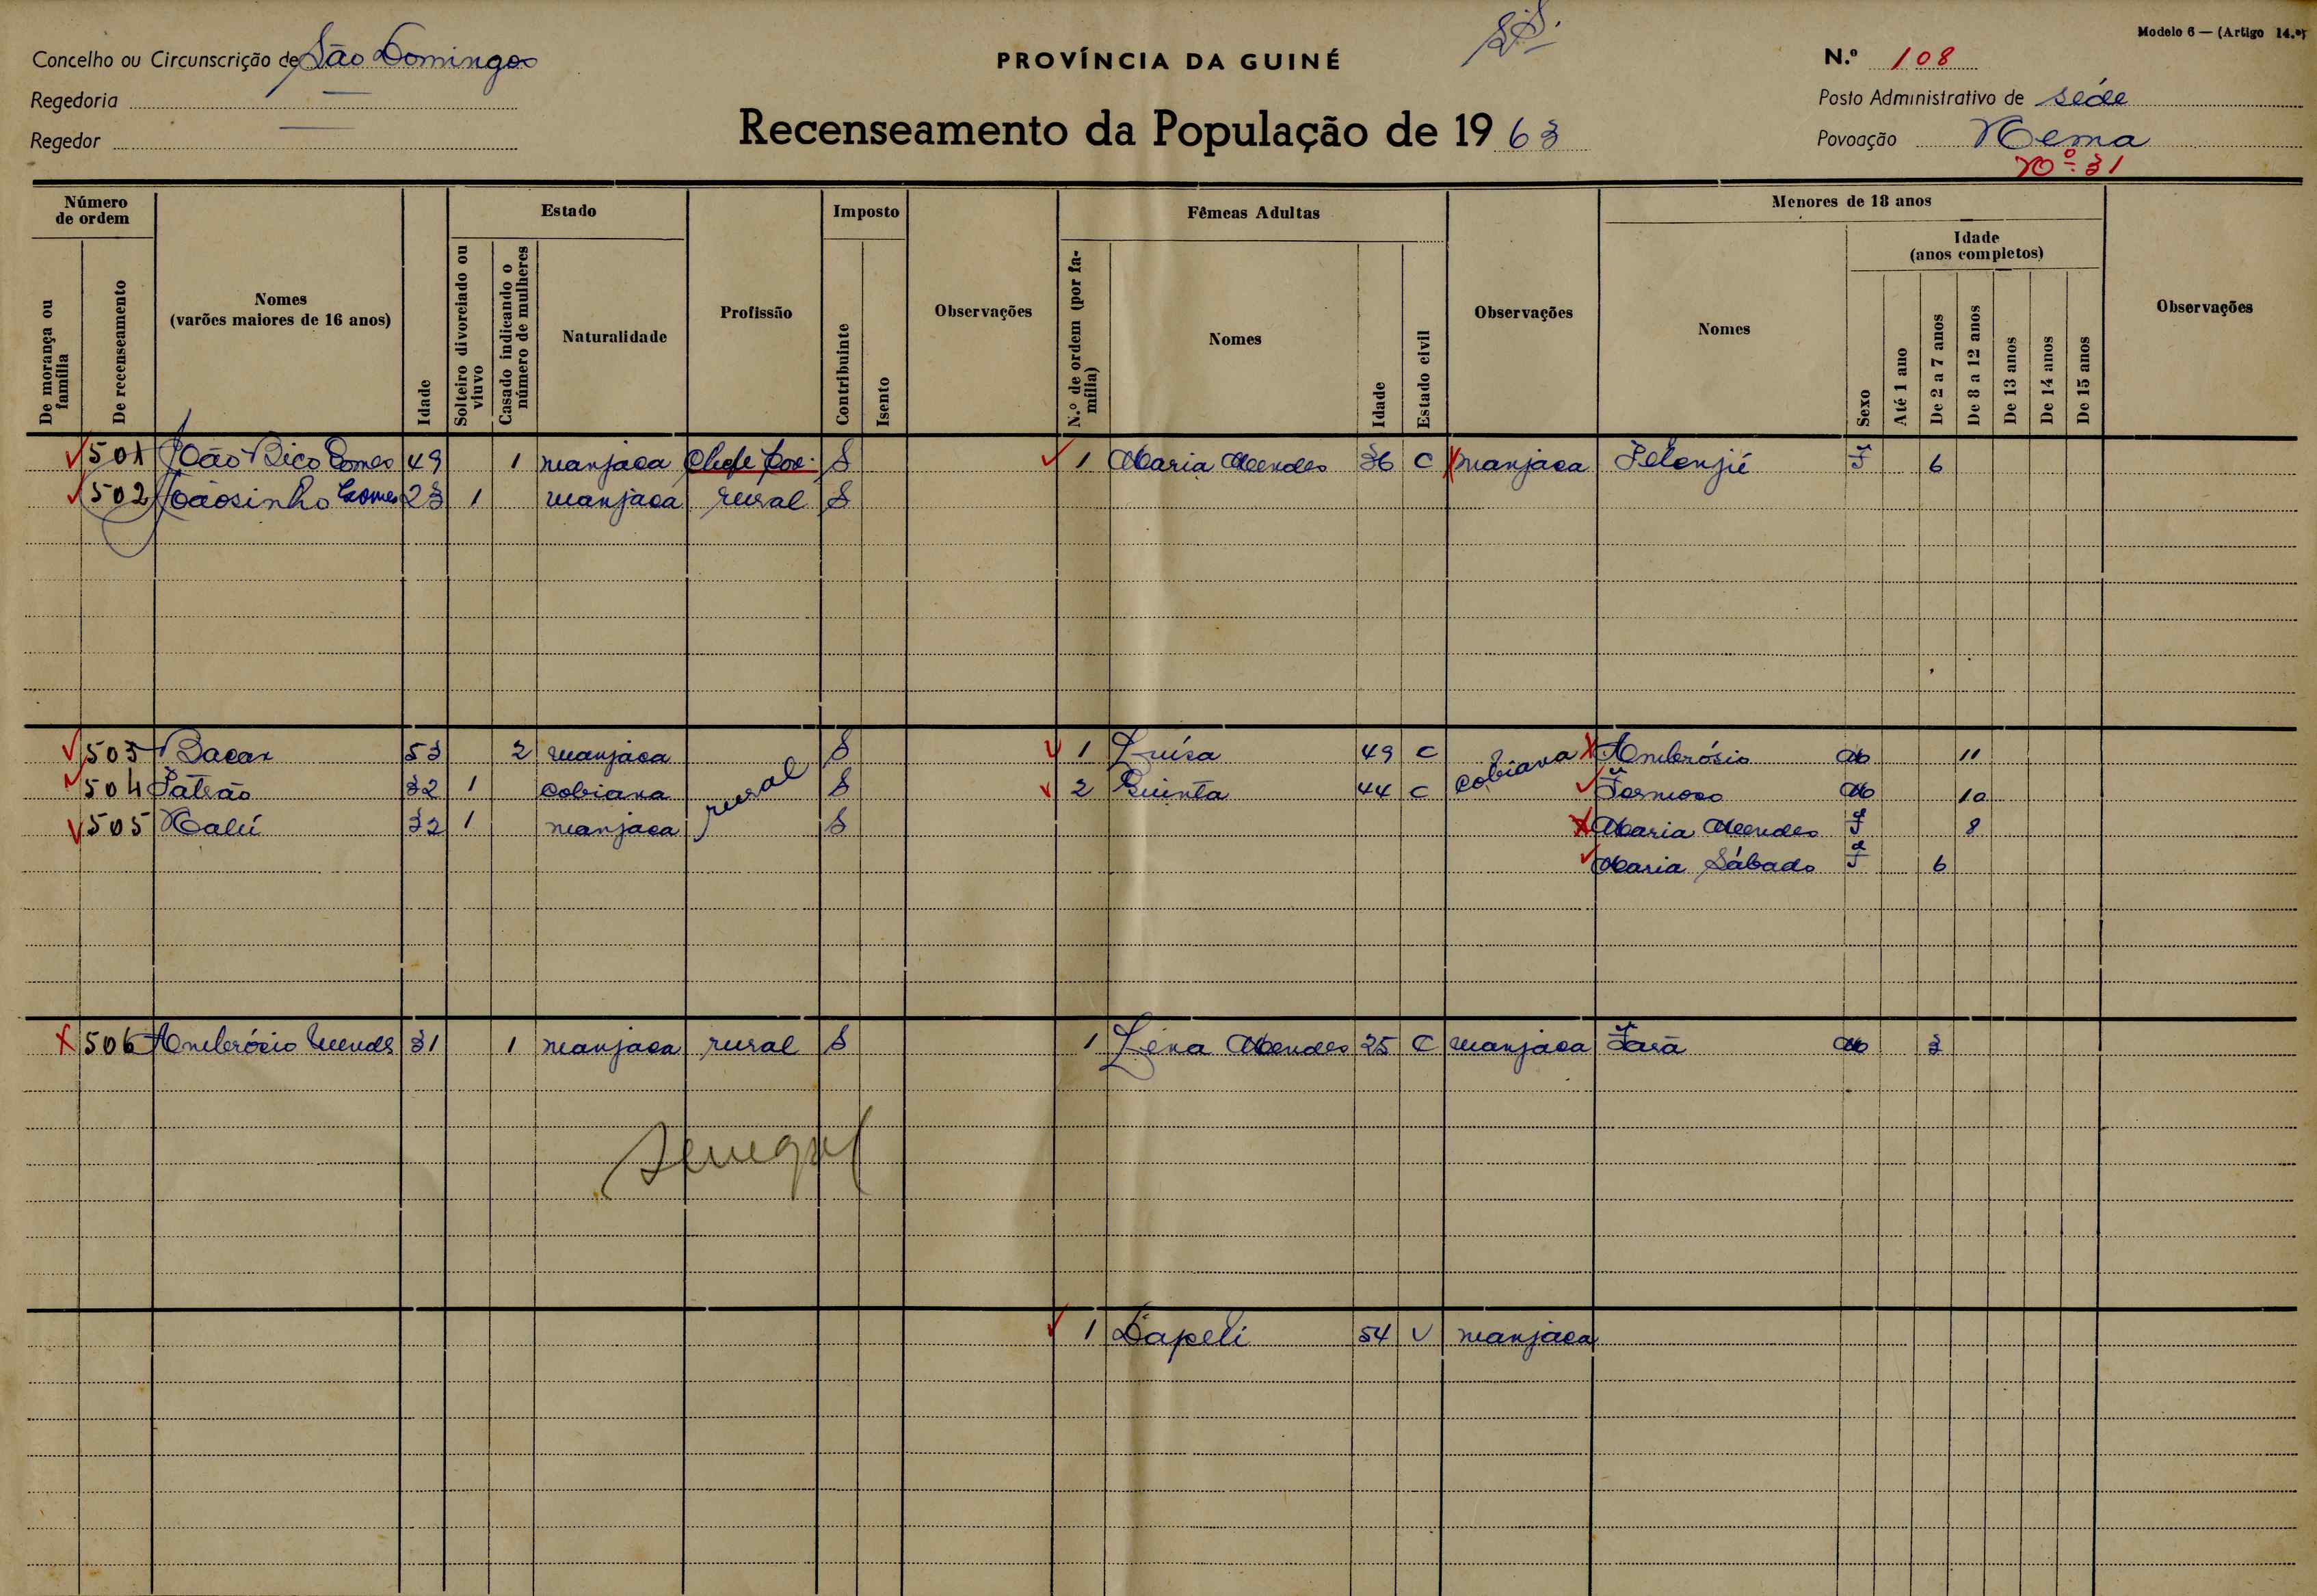 Modelo 6 — (Artigo 14.º)
Concelho ou Circunscrição de São Domingos
PROVÍNCIA DA GUINÉ
N.º 108
Regedoria —
Posto Administrativo de séde
Regedor —
Recenseamento da População de 1963
Povoação Nema
Nº 31
Número de ordem
De morança ou família
De recenseamento
Nomes
(varões maiores de 16 anos)
Idade
Estado
Solteiro divorciado ou viuvo
Casado indicando o número de mulheres
Naturalidade
Profissão
Imposto
Contribuinte
Isento
Observações
Fêmeas Adultas
N.º de ordem (por família)
Nomes
Idade
Estado civil
Observações
Menores de 18 anos
Nomes
Sexo
Idade
(anos completos)
Até 1 ano
De 2 a 7 anos
De 8 a 12 anos
De 13 anos
De 14 anos
De 15 anos
Observações
501 João Bico Gomes 49 1 manjaca Chefe S 1 Maria Mendes 36 C manjaca F 6
502 Joãosinho Gomes 23 1 manjaca rural S
503 Bacar 53 2 manjaca rural S 1 Luísa 49 C cobiana Ambrósio M 11
504 Patrão 32 1 cobiana S 2 Quinta 44 C Formoso M 10
505 Nalú 32 1 manjaca S Maria Mendes F 8
Maria Sábado F 6
506 Ambrósio Mends 31 1 manjaca rural S 1 Lena Mendes 25 C manjaca M 3
Senegal
1 Dapeli 54 V manjaca